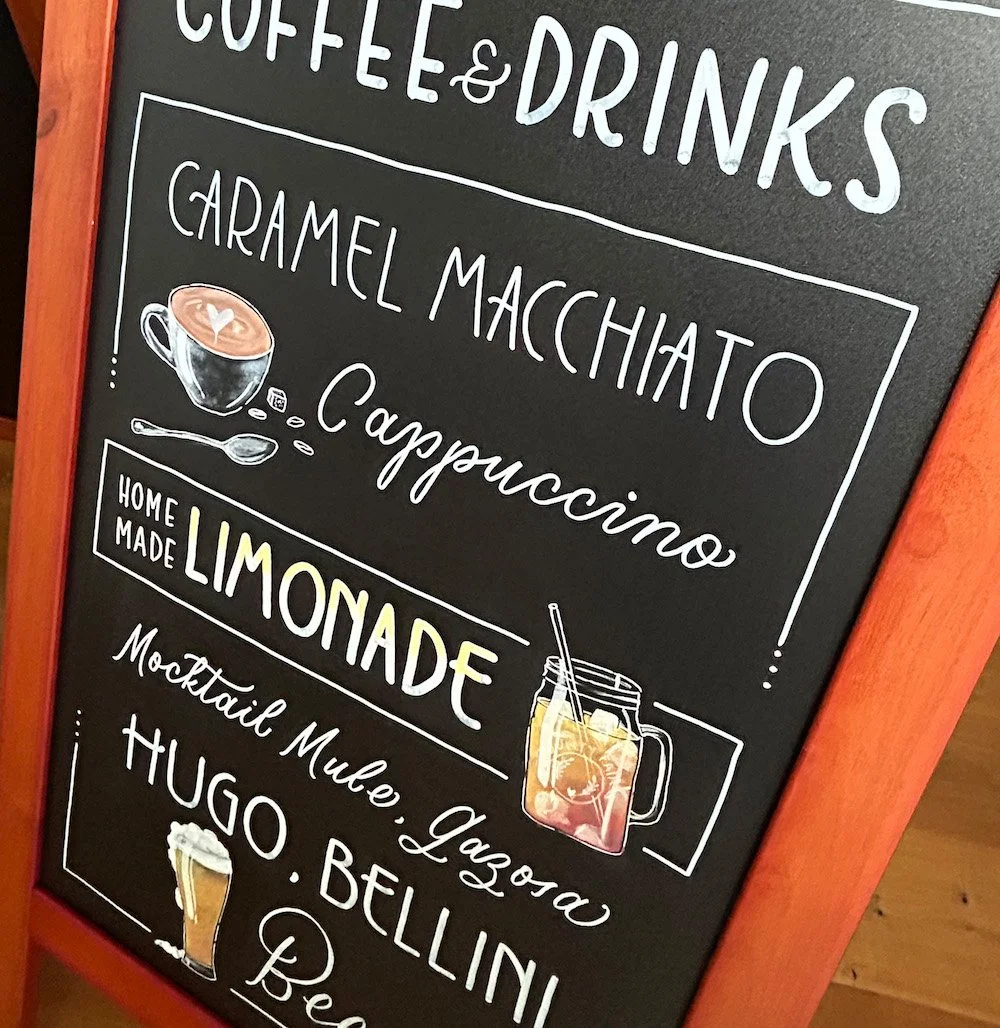 COFFEE & DRINKS
CARAMEL MACCHIATO
Cappuccino
HOME
MADE
LIMONADE
Mocktail Mule, Gazosa
HUGO . BELLINI